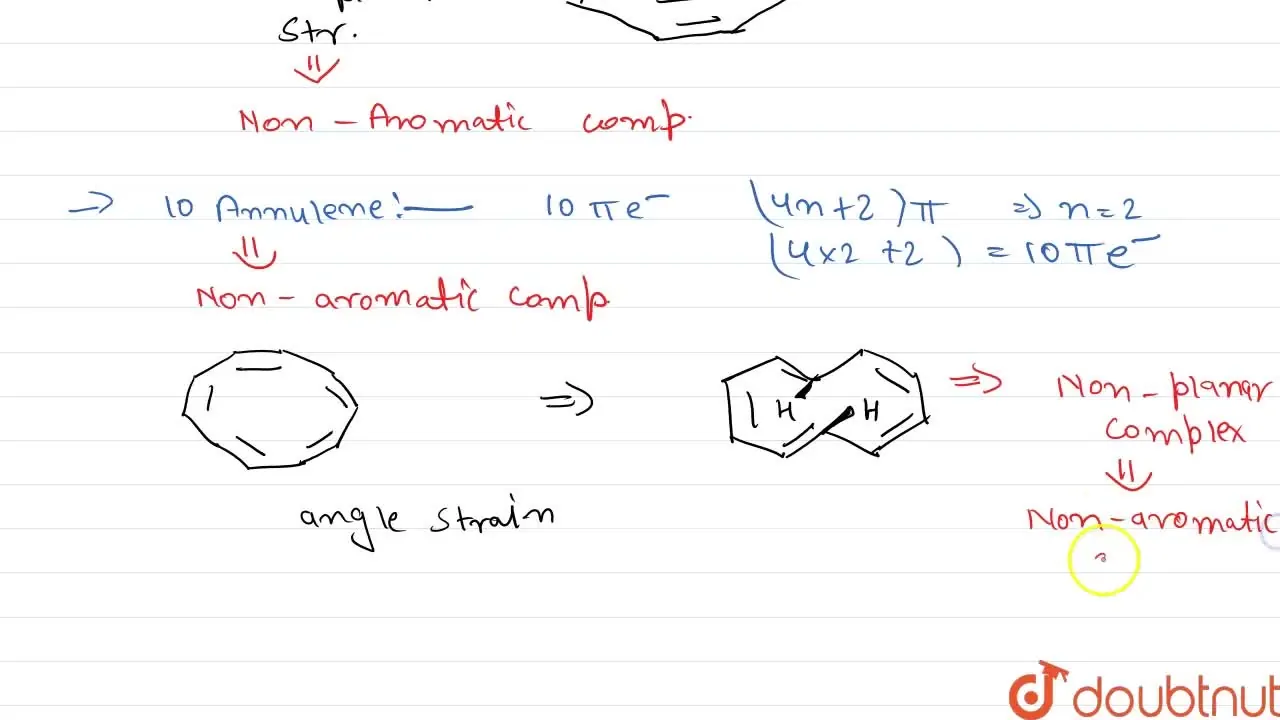 Str.
Non - Aromatic comp.
→ 10 Annulene:— 10 πe⁻ (4n+2)π ⇒ n=2
(4×2+2) = 10πe⁻
Non - aromatic comp.
H H ⇒ Non-planar
complex
angle strain
Non-aromatic
doubtnut